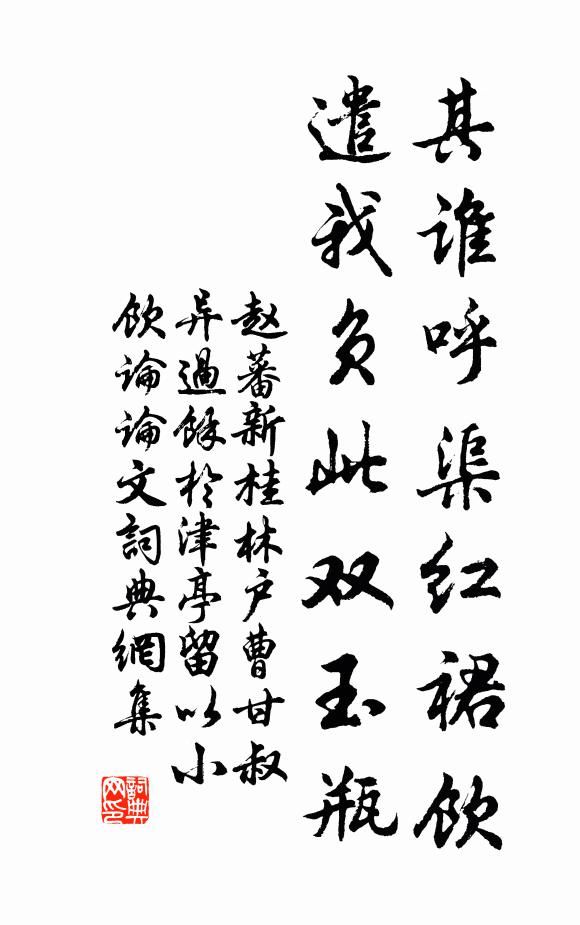 其谁呼渠红裙饮
遣我负此双玉瓶
赵蕃新桂林户曹甘叔
异過餘於津亭留以小
饮論論文詞典網集
詞典
网印